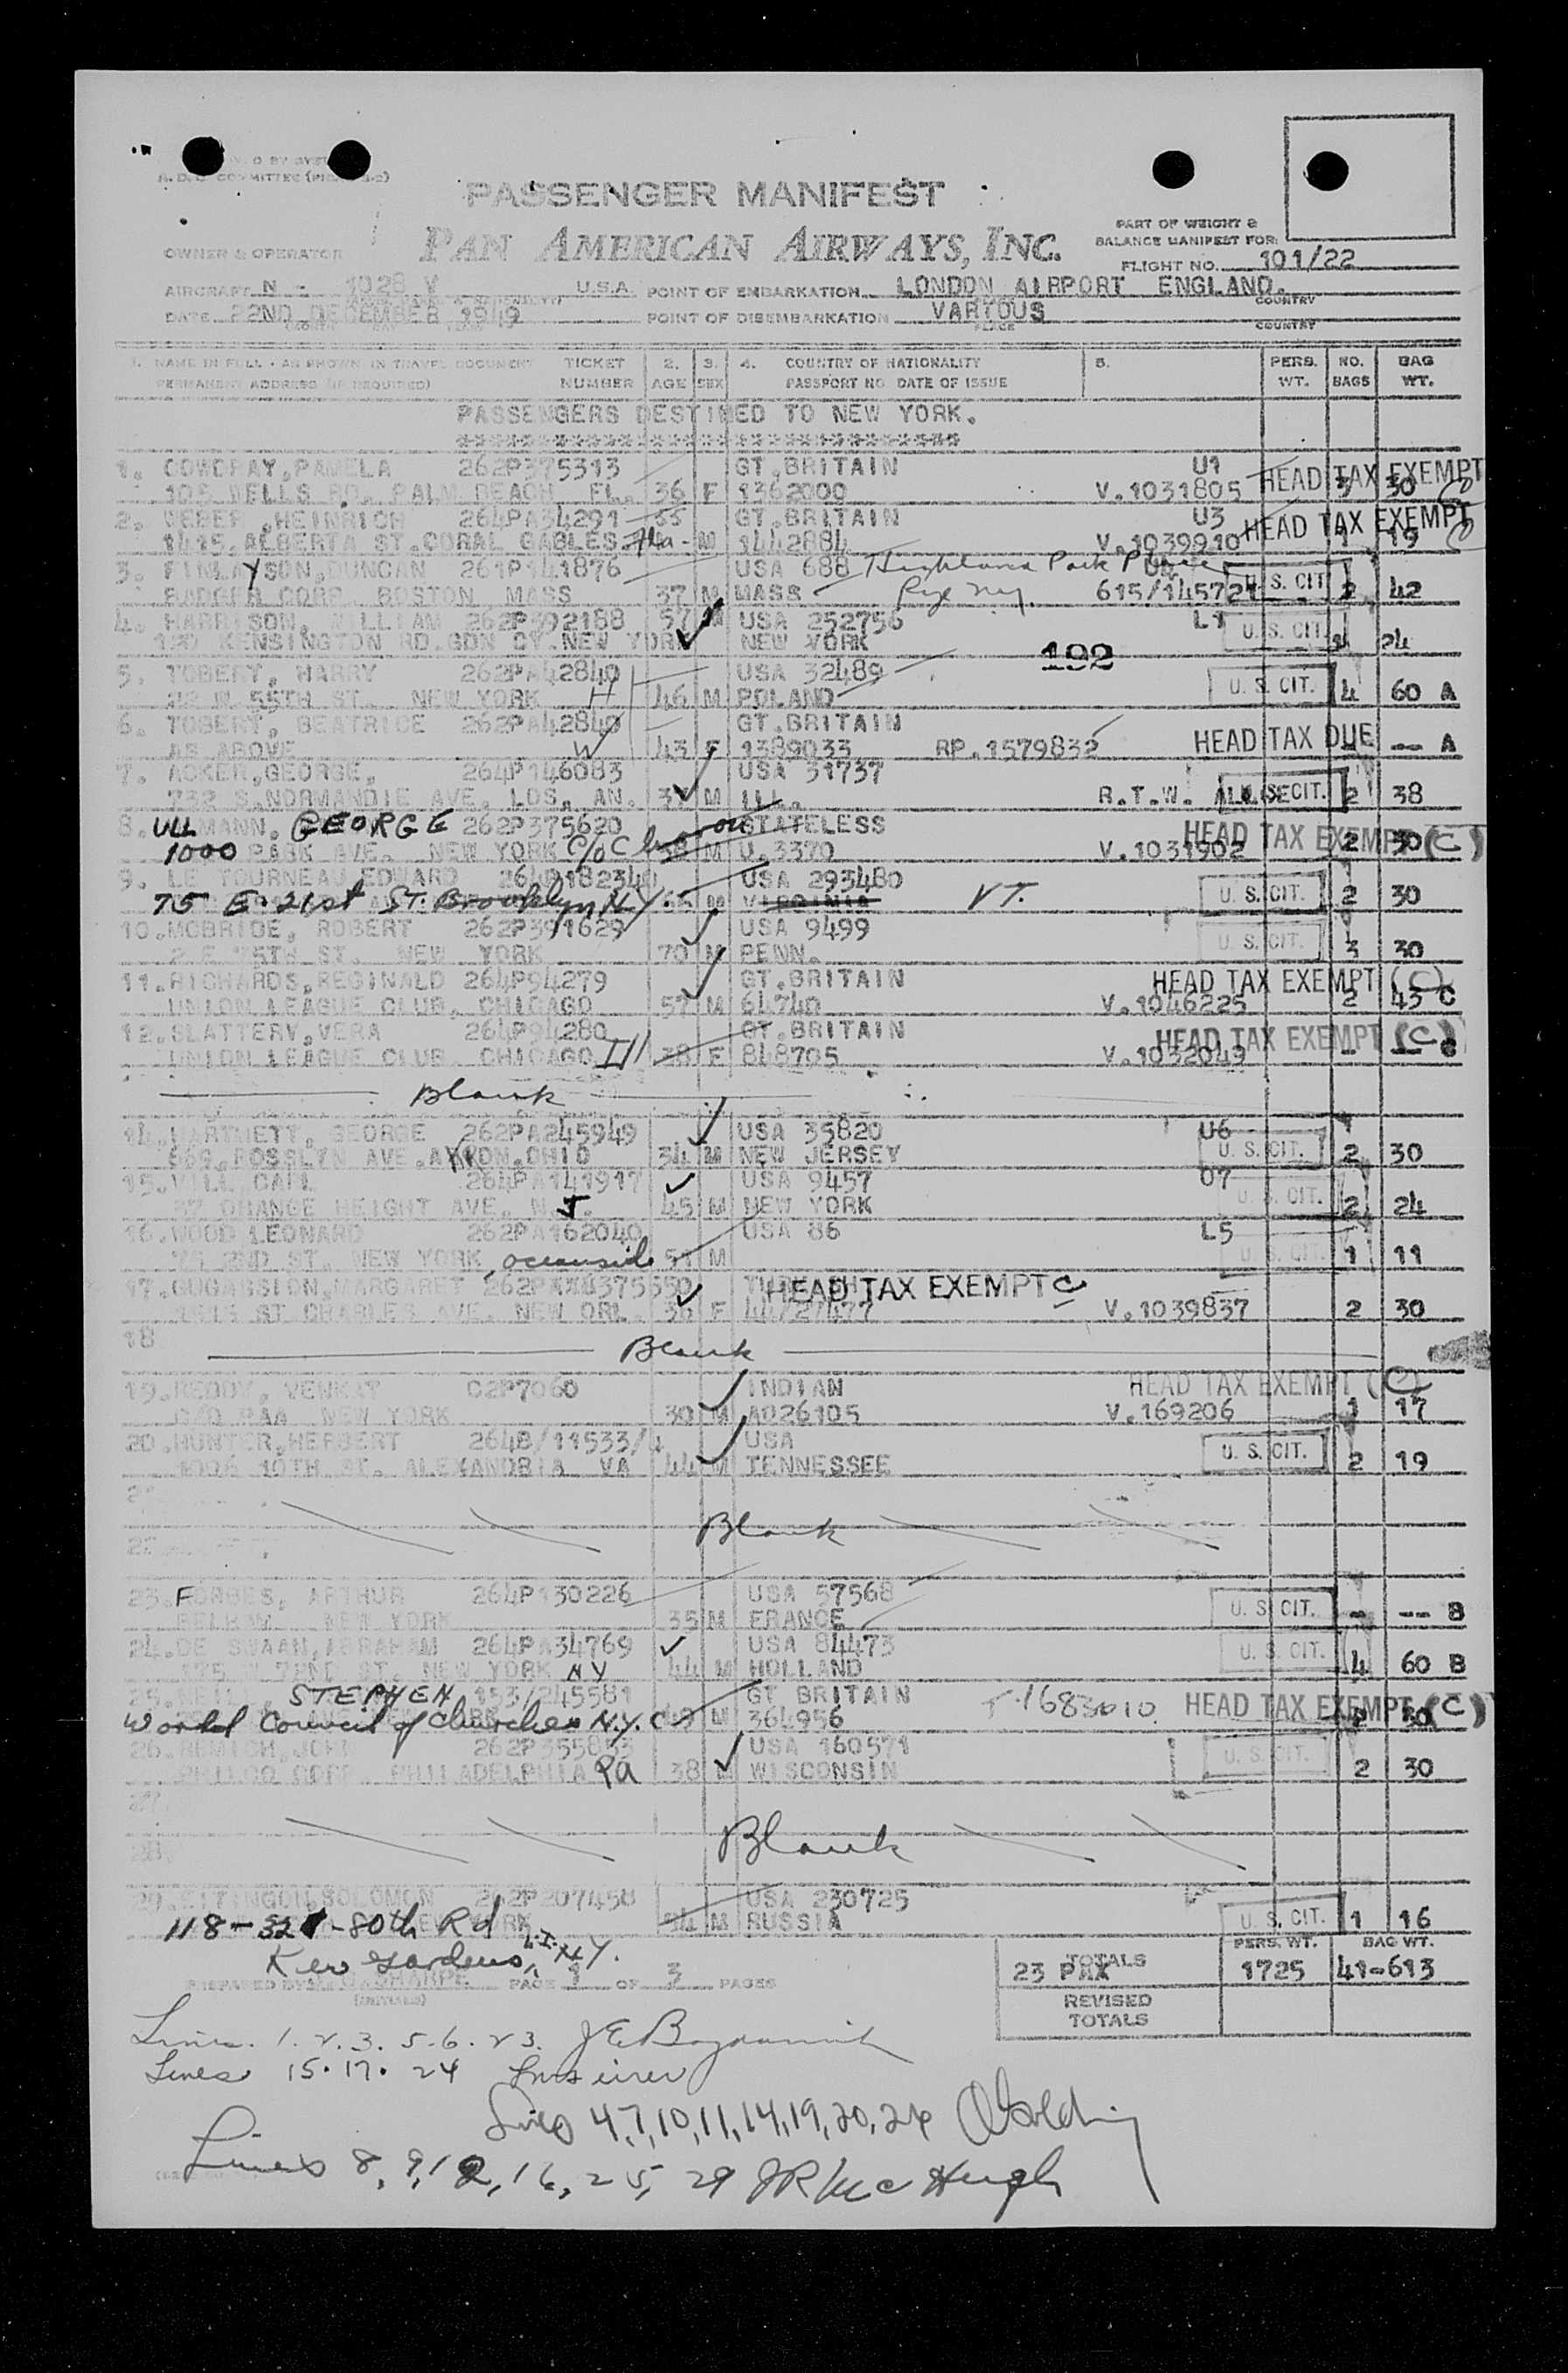 PASSENGER MANIFEST
OWNER & OPERATOR PAN AMERICAN AIRWAYS, INC.
PART OF WEIGHT &
BALANCE MANIFEST FOR:
FLIGHT NO. 101/22
AIRCRAFT N - 1028 V U.S.A. POINT OF EMBARKATION LONDON AIRPORT ENGLAND.
COUNTRY
DATE 22ND DECEMBER 1949 POINT OF DISEMBARKATION VARIOUS
PLACE COUNTRY
1. NAME IN FULL - AS SHOWN IN TRAVEL DOCUMENT TICKET 2. 3. 4. COUNTRY OF NATIONALITY 5. PERS. NO. BAG
PERMANENT ADDRESS (IF REQUIRED) NUMBER AGE SEX PASSPORT NO. DATE OF ISSUE WT. BAGS WT.
PASSENGERS DESTINED TO NEW YORK.
1. COWDRAY,PAMELA 262P375313 GT.BRITAIN U1 HEAD TAX EXEMPT
105 WELLS RD. PALM BEACH FL. 36 F 1362000 V.1031805 3 30
2. WEBER,HEINRICH 264PA34291 55 GT.BRITAIN U3 HEAD TAX EXEMPT
1415.ALBERTA ST.CORAL GABLES. Fla- M 1442884 V.1039910 1 19
3. FINLAYSON,DUNCAN 261P141876 USA 688 Highland Park Place U. S. CIT.
BADGER CORP. BOSTON MASS 37 M MASS Rye N.Y. 615/145721 2 42
4. HARRISON, WILLIAM 262P392188 57 M USA 252756 L1 U. S. CIT.
KENSINGTON RD.GDN CY.NEW YORK NEW YORK 24
192
5. TOBERT, HARRY 262PA42840 USA 32489 U. S. CIT.
22 W 55TH ST. NEW YORK H 46 M POLAND 4 60 A
6. TOBERT, BEATRICE 262PA42840 GT.BRITAIN
AS ABOVE W 43 F 1389033 RP.1579832 HEAD TAX DUE -- A
7. ACKER,GEORGE, 264P146083 USA 31737
732 S.NORMANDIE AVE. LOS. AN. 37 M ILL. R.T.W. U. S. CIT. 2 38
8. ULLMANN, GEORGE 262P375620 STATELESS HEAD TAX EXEMPT (C)
1000 PARK AVE. NEW YORK C/O 38 M U.3370 V.1031902 2 30
9. LE TOURNEAU EDWARD 264P182340 USA 293480
75 E. 21st ST. Brooklyn N.Y. M VIRGINIA VT. U. S. CIT. 2 30
10. MCBRIDE, ROBERT 262P391629 USA 9499 U. S. CIT.
2 E 75TH ST. NEW YORK 70 M PENN. 3 30
11. RICHARDS,REGINALD 264P94279 GT.BRITAIN HEAD TAX EXEMPT (C)
UNION LEAGUE CLUB, CHICAGO 57 M 64740 V.1046225 2 43 C
12. SLATTERY,VERA 264P94280 GT.BRITAIN HEAD TAX EXEMPT (C)
UNION LEAGUE CLUB. CHICAGO Ill 38 F 848705 V.1032049 - -- C
Blank
14. HARTNETT, GEORGE 262PA245949 USA 35820 U6
669.ROSSLYN AVE.AKRON.OHIO 34 M NEW JERSEY U. S. CIT. 2 30
15. VILL CARL 264PA141917 USA 9457 U7 U. S. CIT.
37 ORANGE HEIGHT AVE. N.J. 45 M NEW YORK 2 24
16. WOOD LEONARD 262PA162040 USA 86 L5
2ND ST. NEW YORK, oceanside 51 M U. S. CIT. 1 11
17. GUGASSION,MARGARET HEAD TAX EXEMPT C
1515 ST CHARLES AVE. NEW ORL. 36 F V.1039837 2 30
18
Blank
19. REDDY, VENKAT C2P7060 INDIAN HEAD TAX EXEMPT (C)
C/O PAA NEW YORK 30 M A026105 V.169206 1 17
20. HUNTER,HERBERT 264B/11533/4 USA
10TH ST. ALEXANDRIA VA 44 M TENNESSEE U. S. CIT. 2 19
Blank
23. FORBES, ARTHUR 264P130226 USA 57568 U. S. CIT.
PELHAM. NEW YORK 35 M FRANCE - -- B
24. DE SWAAN,ABRAHAM 264PA34769 USA 84473 U. S. CIT.
175 W 72ND ST. NEW YORK NY 44 M HOLLAND 4 60 B
25. STEPHEN 153/245581 GT BRITAIN T.1683010 HEAD TAX EXEMPT (C)
World Council of Churches N.Y.C M 364956 2 30
26. 262P355853 USA 160571 U. S. CIT.
PHILCO CORP. PHILADELPHIA Pa 38 M WISCONSIN 2 30
Blank
29. EITINGON,SOLOMON 262P207458 USA 230725
118-32 -80th Rd 54 M RUSSIA U. S. CIT. 1 16
Kew Gardens, L.I. N.Y.
PREPARED BY SHARPE PAGE 1 OF 3 PAGES
(INITIALS)
PERS. WT. BAG WT.
TOTALS
23 PAX 1725 41-613
REVISED
TOTALS
Lines. 1. 2. 3. 5. 6. 23.
Lines 15. 17. 24
Lines 4,7,10,11,14,19,20,26
Lines 8, 9, 12, 16, 25, 29 JR McHugh